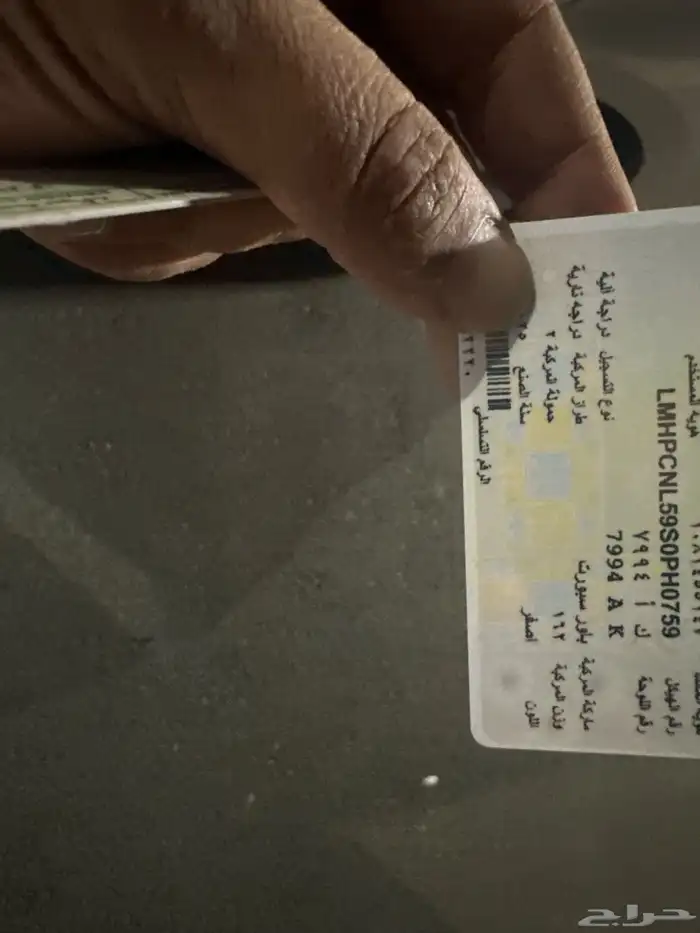 هوية المستخدم
رقم الهيكل LMHPCNL59S0PH0759
رقم اللوحة ٧٩٩٤ أ ك
7994 A K
نوع التسجيل دراجة آلية
ماركة المركبة باور سبورت
طراز المركبة دراجه نارية
وزن المركبة ١٦٢
حمولة المركبة ٢
اللون اصفر
سنة الصنع
الرقم التسلسلي
حراج